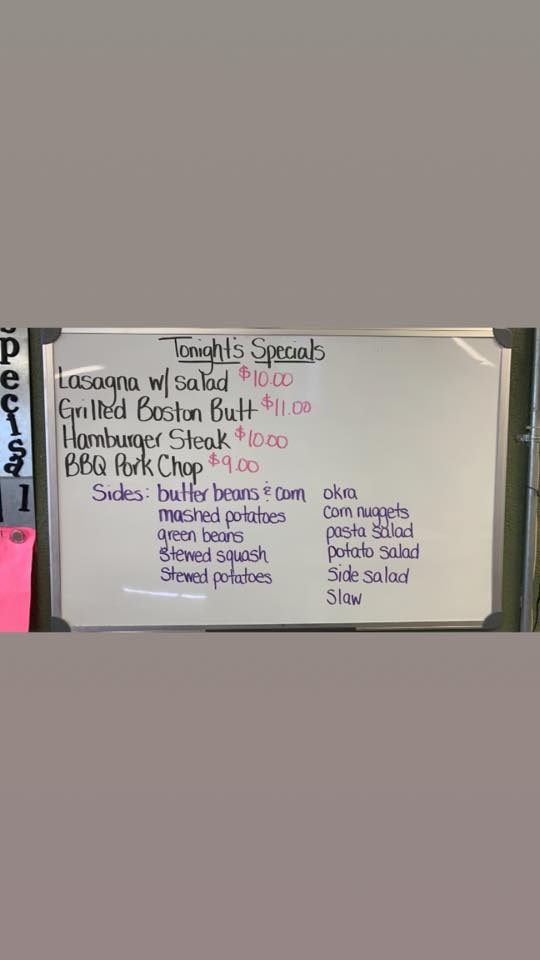 Tonight's Specials
Lasagna w/ salad $10.00
Grilled Boston Butt $11.00
Hamburger Steak $10.00
BBQ Pork Chop $9.00
Sides: butter beans & corn
mashed potatoes
green beans
Stewed squash
Stewed potatoes
okra
corn nuggets
pasta salad
potato salad
Side salad
Slaw